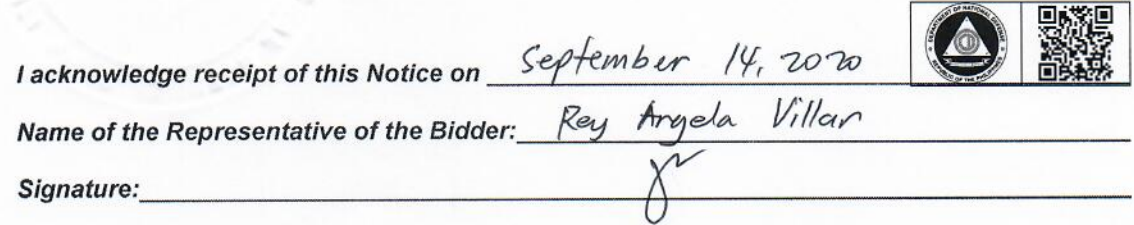 DEPARTMENT OF NATIONAL DEFENSE
REPUBLIC OF THE PHILIPPINES
I acknowledge receipt of this Notice on September 14, 2020
Name of the Representative of the Bidder: Rey Angela Villar
Signature: